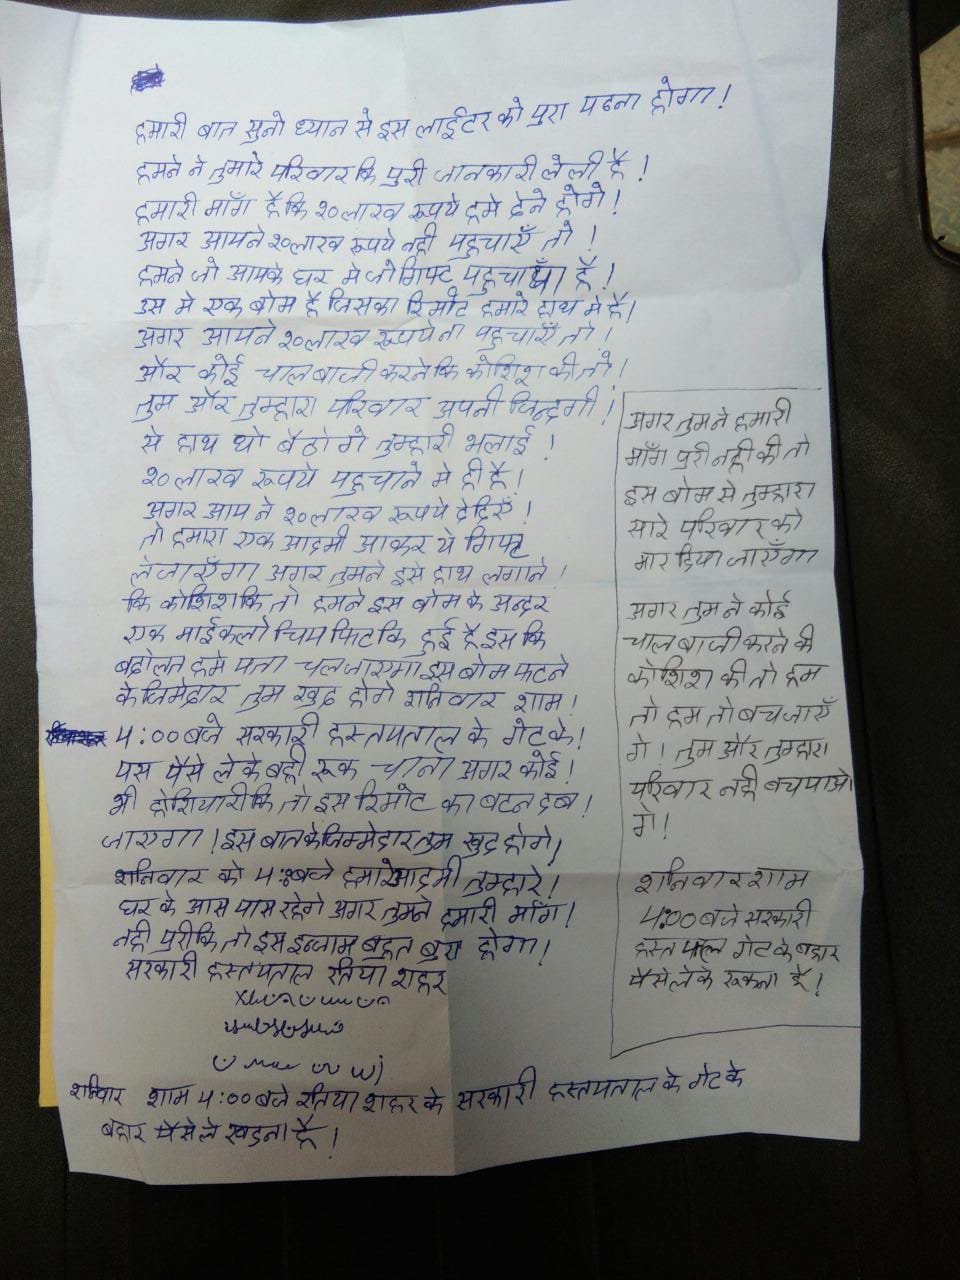 हमारी बात सुनो ध्यान से इस लाईटर को पुरा पढना होगा!
हमने ने तुमारे परिवार कि पुरी जानकारी ले ली है!
हमारी माँग है कि २० लाख रूपये हमे देने होगे!
अगर आपने २० लाख रूपये नही पहुचाएँ तो!
हमने जो आपके घर मे जो गिफ्ट पहुचायाँ है!
उस मे एक बोम है जिसका रिमोट हमारे हाथ मे है।
अगर आपने २० लाख रूपये ना पहुचाएँ तो!
और कोई चालबाजी करने कि कोशिश की तो!
तुम और तुम्हारा परिवार अपनी जिन्दगी!
से हाथ धो बैठो गे तुम्हारी भलाई!
२० लाख रूपये पहुचाने मे ही है!
अगर आप ने २० लाख रूपये दे दिएँ!
तो हमारा एक आदमी आकर ये गिफ्ट
ले जाएँगा अगर तुमने इसे हाथ लगाने!
कि कोशिश कि तो हमने इस बोम के अन्दर
एक माईकलो चिप फिट कि हुई है इस कि
बदोलत हमे पता चल जाएगा इस बोम फटने
के जिमेदार तुम खुद होगे शनिवार शाम!
4:00 बजे सरकारी हस्तपताल के गेट के!
पास पैसे लेके बही रूक जाना अगर कोई!
भी होशियारी कि तो इस रिमोट का बटन दब!
जाएगा! इस बात के जिम्मेदार तुम खुद होगे!
शनिवार को 4:00 बजे हमारे आदमी तुम्हारे!
घर के आस पास रहेगे अगर तुमने हमारी माँग!
नही पुरी कि तो इस इन्जाम बहुत बुरा होगा!
सरकारी हस्तपताल रतिया शहर
शनिवार शाम 4:00 बजे रतिया शहर के सरकारी हस्तपताल के गेट के
बहार पैसे ले खडना है!
अगर तुमने हमारी
माँग पुरी नही की तो
इस बोम से तुम्हारा
सारे परिवार को
मार दिया जाएँगा
अगर तुम ने कोई
चाल बाजी करने की
कोशिश की तो हम
तो हम तो बच जाएँ
गे! तुम और तुम्हारा
परिवार नही बच पाओ
गे!
शनिवार शाम
4:00 बजे सरकारी
हस्तपाल गेट के बहार
पैसे लेके रूकना है!